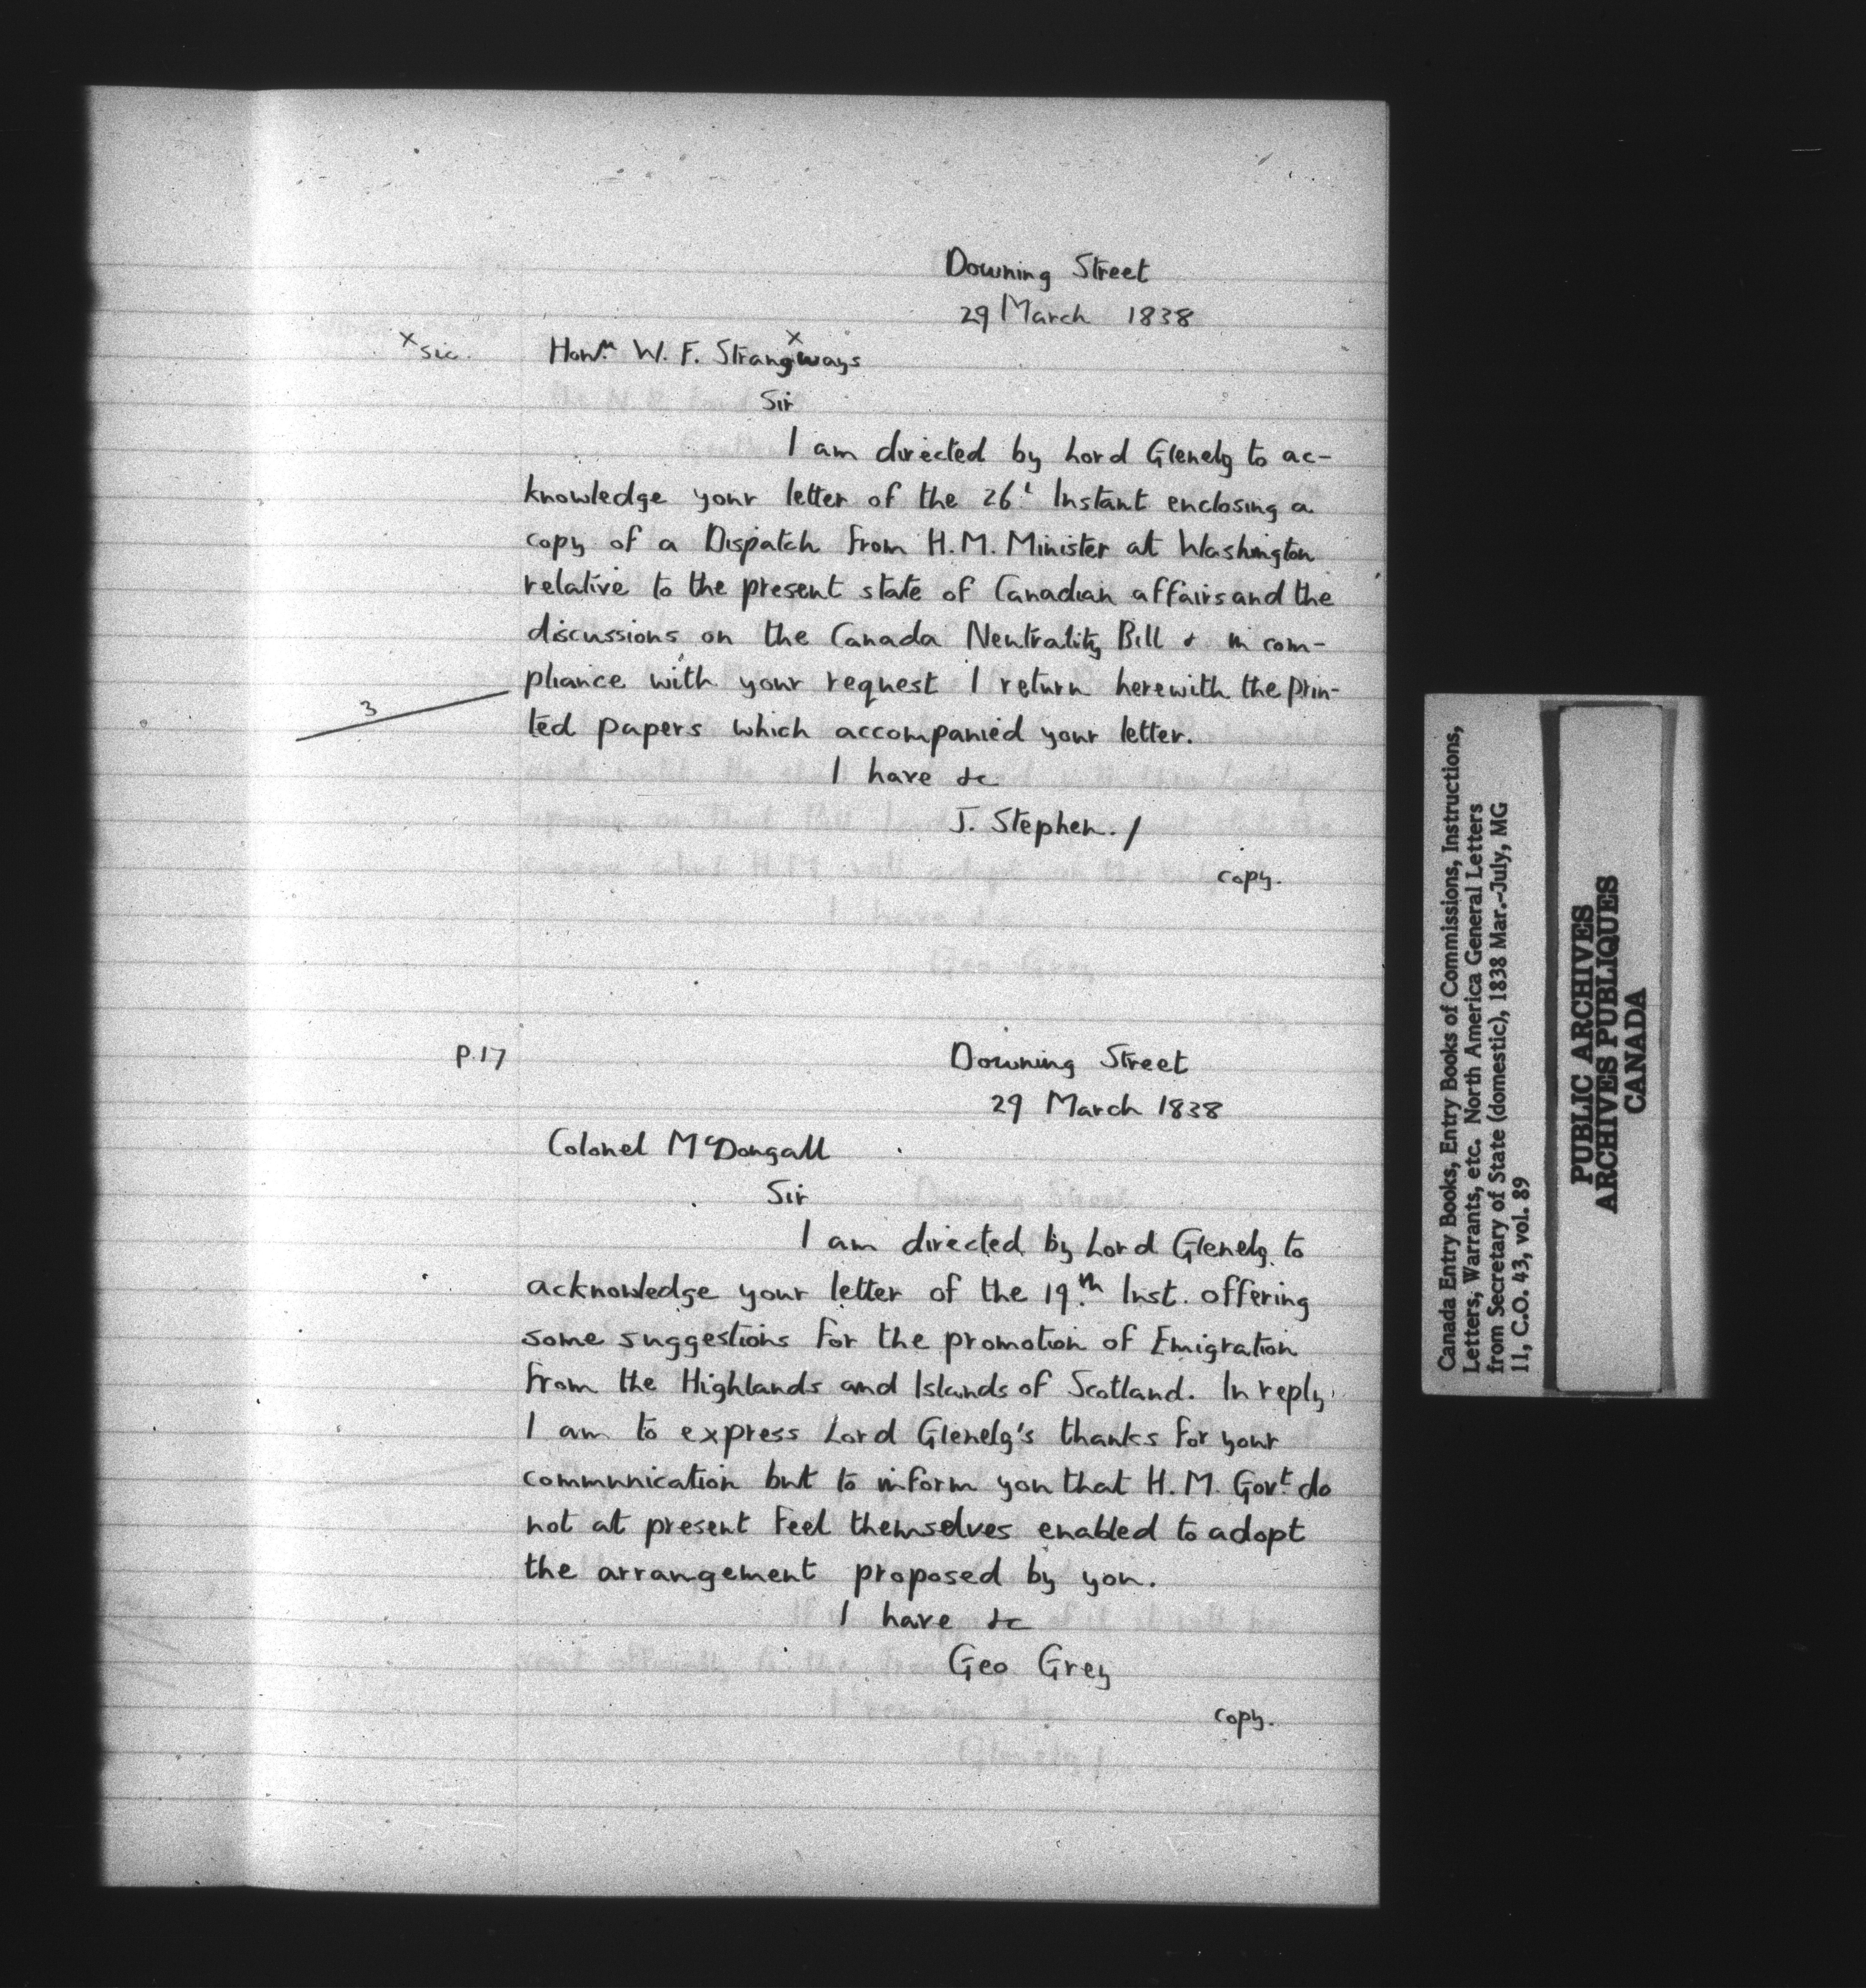 Downing Street
29 March 1838
x sic.
Hon. W. F. Strangways
x
Sir
I am directed by Lord Glenelg to ac-
knowledge your letter of the 26t Instant enclosing a
copy of a Dispatch from H.M. Minister at Washington
relative to the present state of Canadian affairs and the
discussions on the Canada Neutrality Bill & in com-
pliance with your request I return herewith the prin-
3
ted papers which accompanied your letter.
I have &c
J. Stephen. /
copy.
p.17
Downing Street
29 March 1838
Colonel McDougall
Sir
I am directed by Lord Glenelg to
acknowledge your letter of the 19.th Inst. offering
some suggestions for the promotion of Emigration
from the Highlands and Islands of Scotland. In reply
I am to express Lord Glenelg's thanks for your
communication but to inform you that H.M. Govt. do
not at present feel themselves enabled to adopt
the arrangement proposed by you.
I have &c
Geo Grey
copy.
Canada Entry Books, Entry Books of Commissions, Instructions,
Letters, Warrants, etc. North America General Letters
from Secretary of State (domestic), 1838 Mar.-July, MG
11, C.O. 43, vol. 89
PUBLIC ARCHIVES
ARCHIVES PUBLIQUES
CANADA